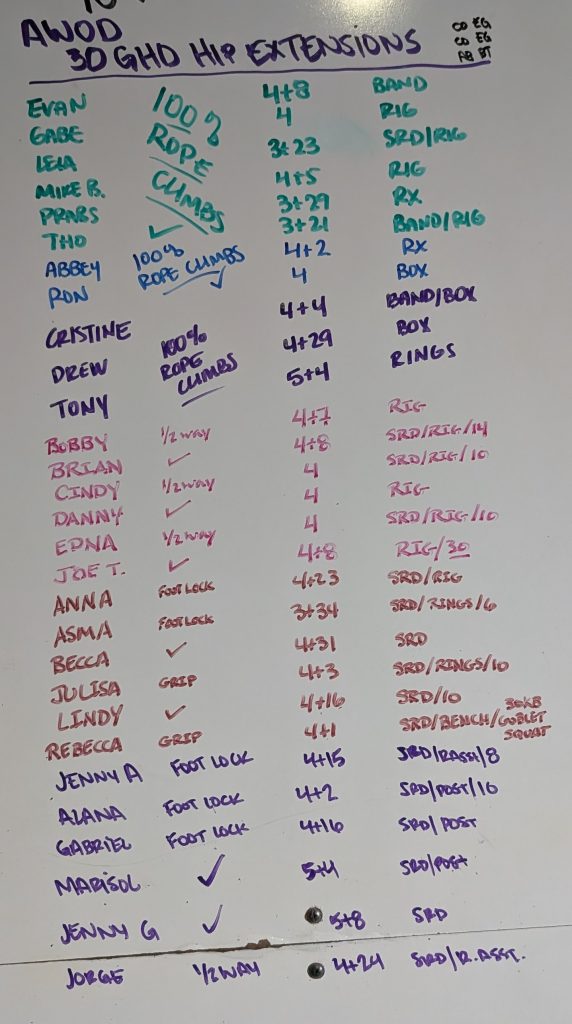 AWOD
CO EG
CO EG
30 GHD HIP EXTENSIONS
EVAN 100% 4+8 BAND
GABE ROPE 4 RIG
LELA CLIMBS 3+23 SRD/RIG
MIKE B. 4+5 RIG
PRABS 3+29 RX
THO ✓ 3+21 BAND/RIG
ABBEY 100% 4+2 RX
RON ROPE CLIMBS ✓ 4 BOX
CRISTINE 4+4 BAND/BOX
DREW 100% ROPE 4+29 BOX
TONY CLIMBS 5+4 RINGS
BOBBY 1/2 WAY 4+7 RIG
BRIAN ✓ 4+8 SRD/RIG/14
CINDY 1/2 WAY 4 SRD/RIG/10
DANNY ✓ 4 RIG
EDNA 1/2 WAY 4 SRD/RIG/10
JOE T. ✓ 4+8 RIG/30
ANNA FOOT LOCK 4+23 SRD/RIG
ASMA FOOT LOCK 3+34 SRD/RINGS/6
BECCA ✓ 4+31 SRD
JULISA GRIP 4+3 SRD/RINGS/10
LINDY ✓ 4+16 SRD/10
REBECCA GRIP 4+1 SRD/BENCH/30KB GOBLET SQUAT
JENNY A FOOT LOCK 4+15 SRD/RASST/8
ALANA FOOT LOCK 4+2 SRD/POST/10
GABRIEL FOOT LOCK 4+16 SRD/POST
MARISOL ✓ 5+4 SRD/POST
JENNY G ✓ 5+8 SRD
JORGE 1/2 WAY 4+24 SRD/R.ASST.